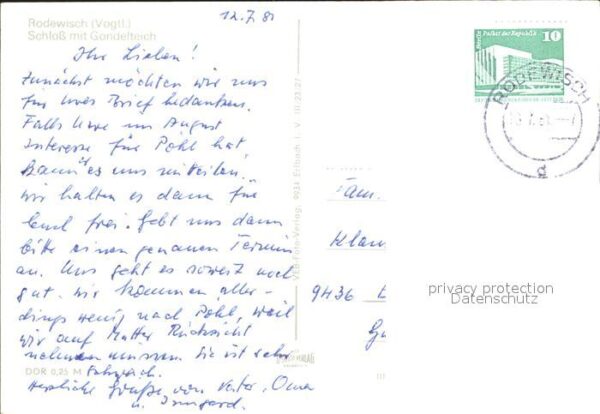 Rodewisch (Vogtl.)
Schloß mit Gondelteich
12.7.81
Ihr Lieben!
Zunächst möchten wir uns
für Uwes Brief bedanken.
Falls Uwe im August
Interesse für Pöhl hat,
kann es uns mitteilen.
wir halten es dann für
Euch frei. Gebt uns dann
bitte einen genauen Termin
an. Uns geht es soweit noch
gut. wir kommen aller-
dings wenig nach Pöhl, weil
wir auf Mutter Rücksicht
nehmen müssen. Sie ist sehr
schwach.
Herzliche Grüße von Vater, Oma
u. Irmgard.
DDR 0,25 M
VEB Foto-Verlag, 9934 Erlbach
Berlin Palast der Republik 10
RODEWISCH
d
Fam.
Klau
9436
privacy protection
Datenschutz